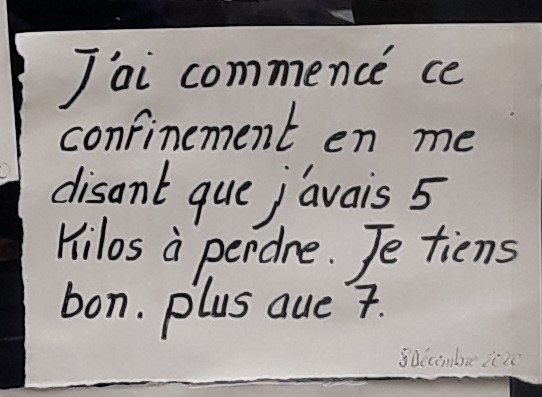 J'ai commencé ce
confinement en me
disant que j'avais 5
Kilos à perdre. Je tiens
bon. plus que 7.
5 Décembre 2020